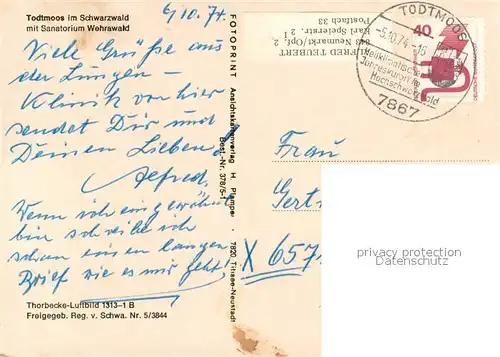 Todtmoos im Schwarzwald
mit Sanatorium Wehrawald
6/10. 74.
Viele Grüße aus
der Lungen-
Klinik von hier
sendet Dir und
Deinen Lieben
Alfred.
Wenn ich eingewöhnt
bin schreibe ich
schon einen langen
Brief wie es mir geht.
Thorbecke-Luftbild 1313-1 B
Freigegeb. Reg. v. Schwa. Nr. 5/3844
FOTOPRINT Ansichtskartenverlag H. Pfamper · 7820 Titisee-Neustadt
Best.-Nr. 378/5-1
TEUBERT
Karl Speier str. 2
843 Neumarkt/Opf. 2
Postfach 33
TODTMOOS
-5.10.74-16
Heilklimatischer
Jahreskurort im
Hochschwarzwald
7867
40
Frau
Gert
X 657
privacy protection
watermark